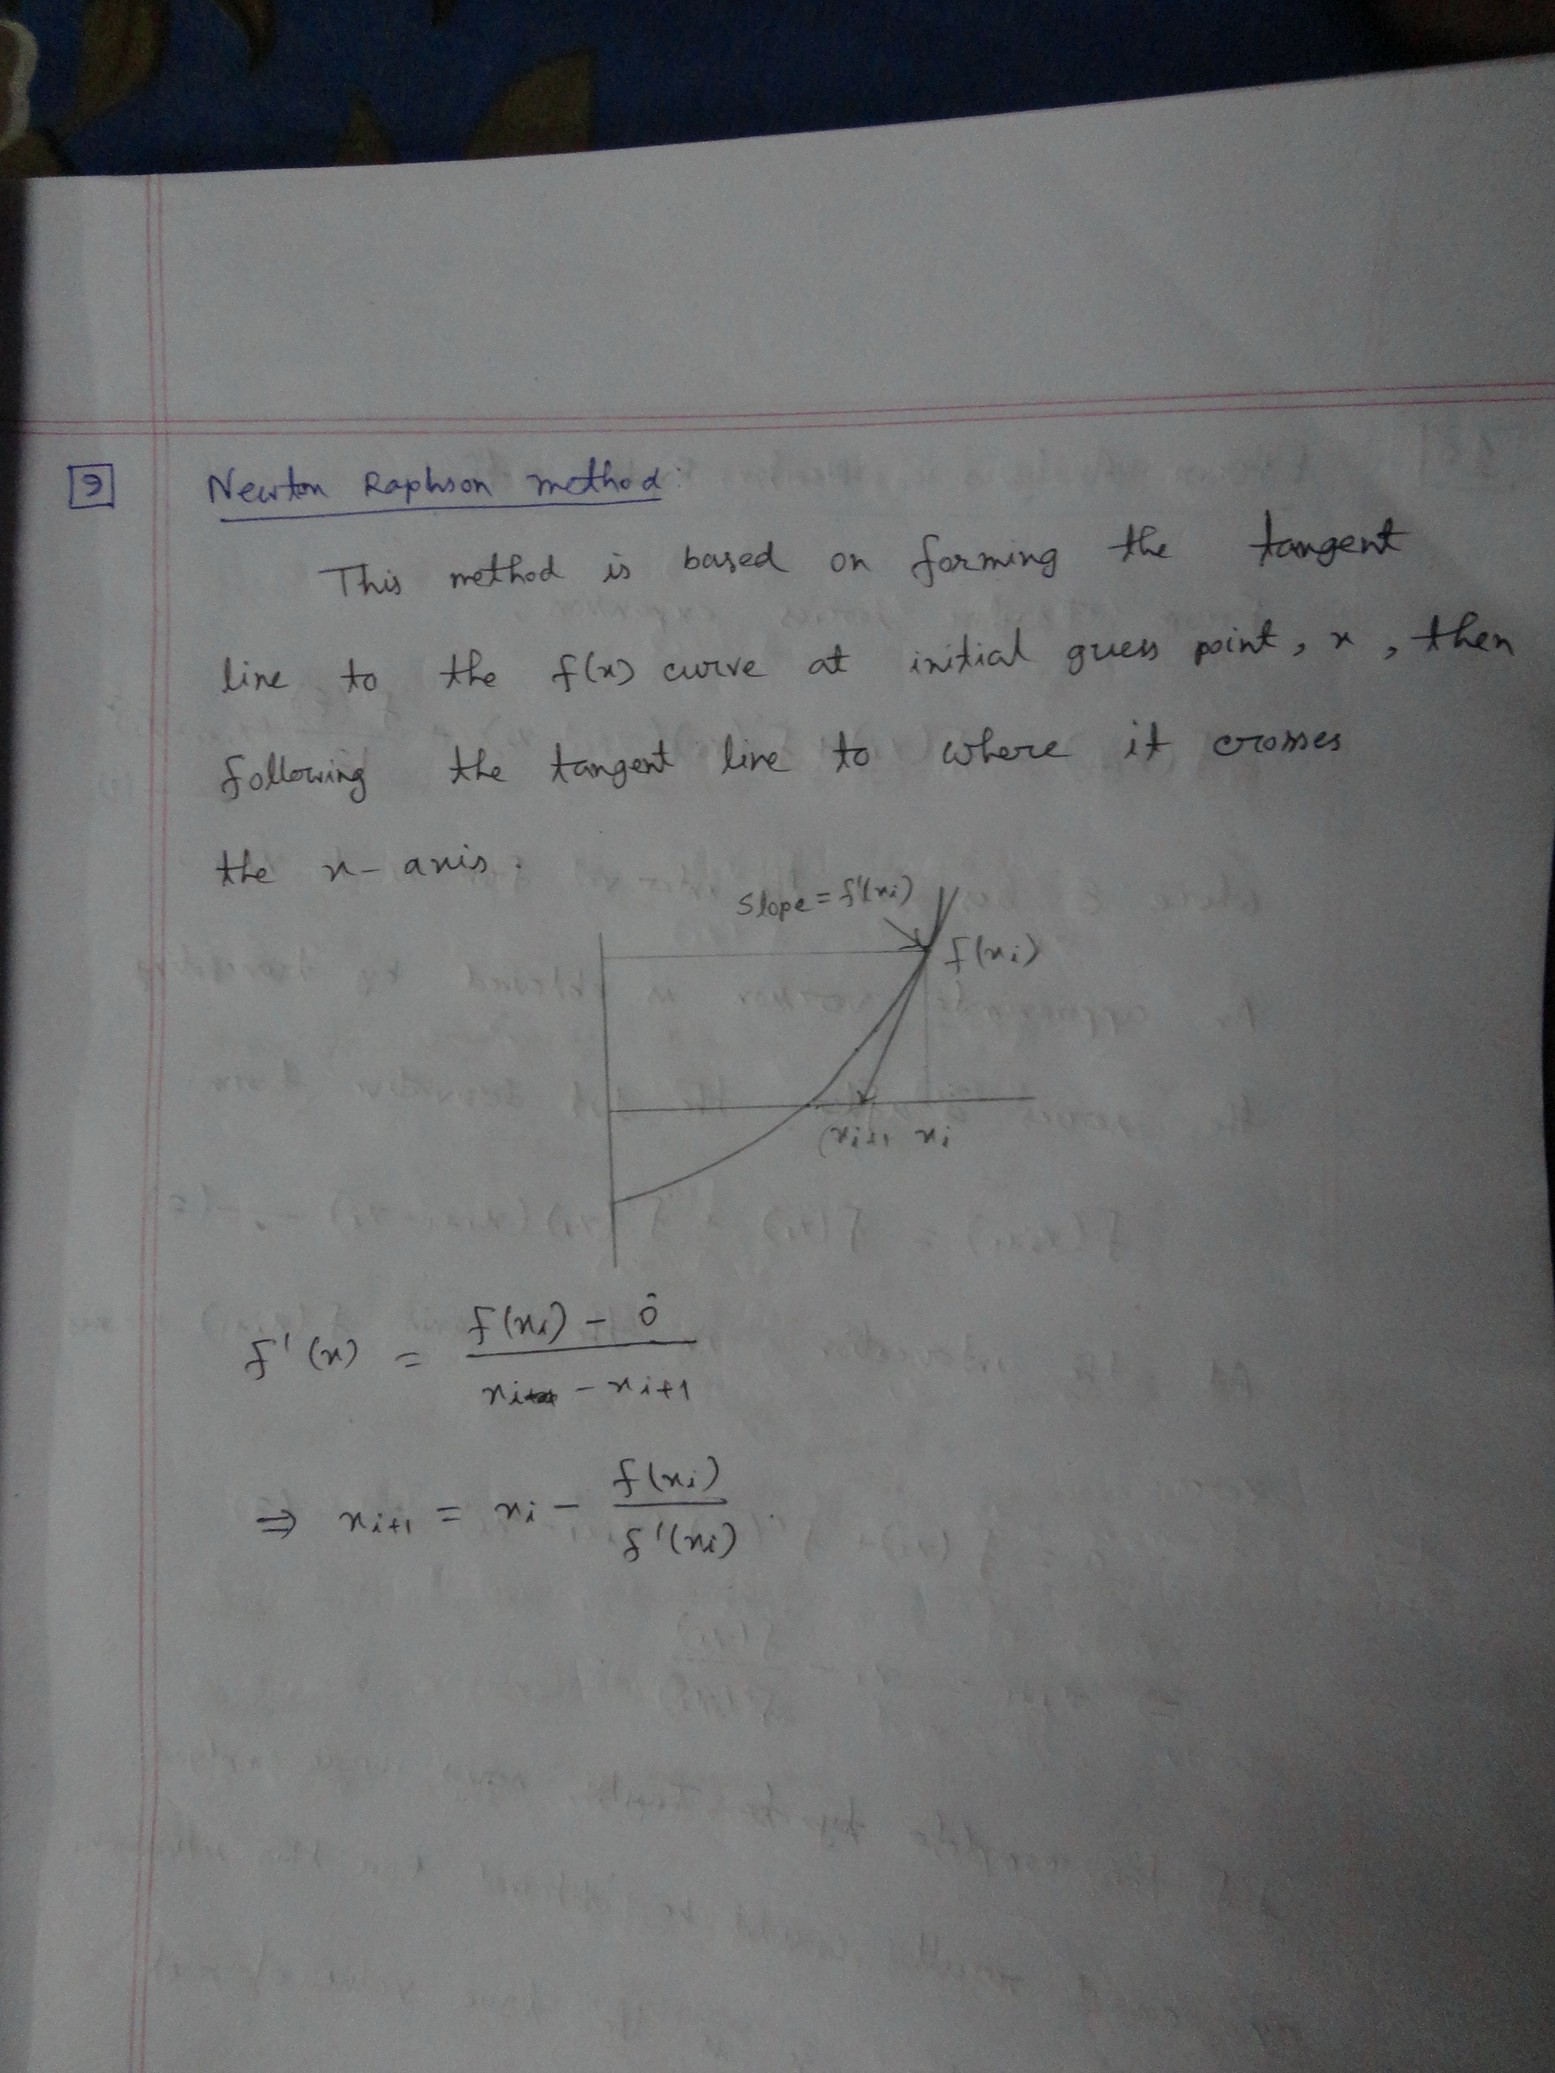 9 Newton Raphson method:
This method is based on forming the tangent
line to the f(x) curve at initial guess point, x, then
following the tangent line to where it crosses
the x-axis.
Slope = f'(xi)
f(xi)
xi+1 xi
f'(x) = f(xi) - 0 / xi - xi+1
⇒ xi+1 = xi - f(xi) / f'(xi)